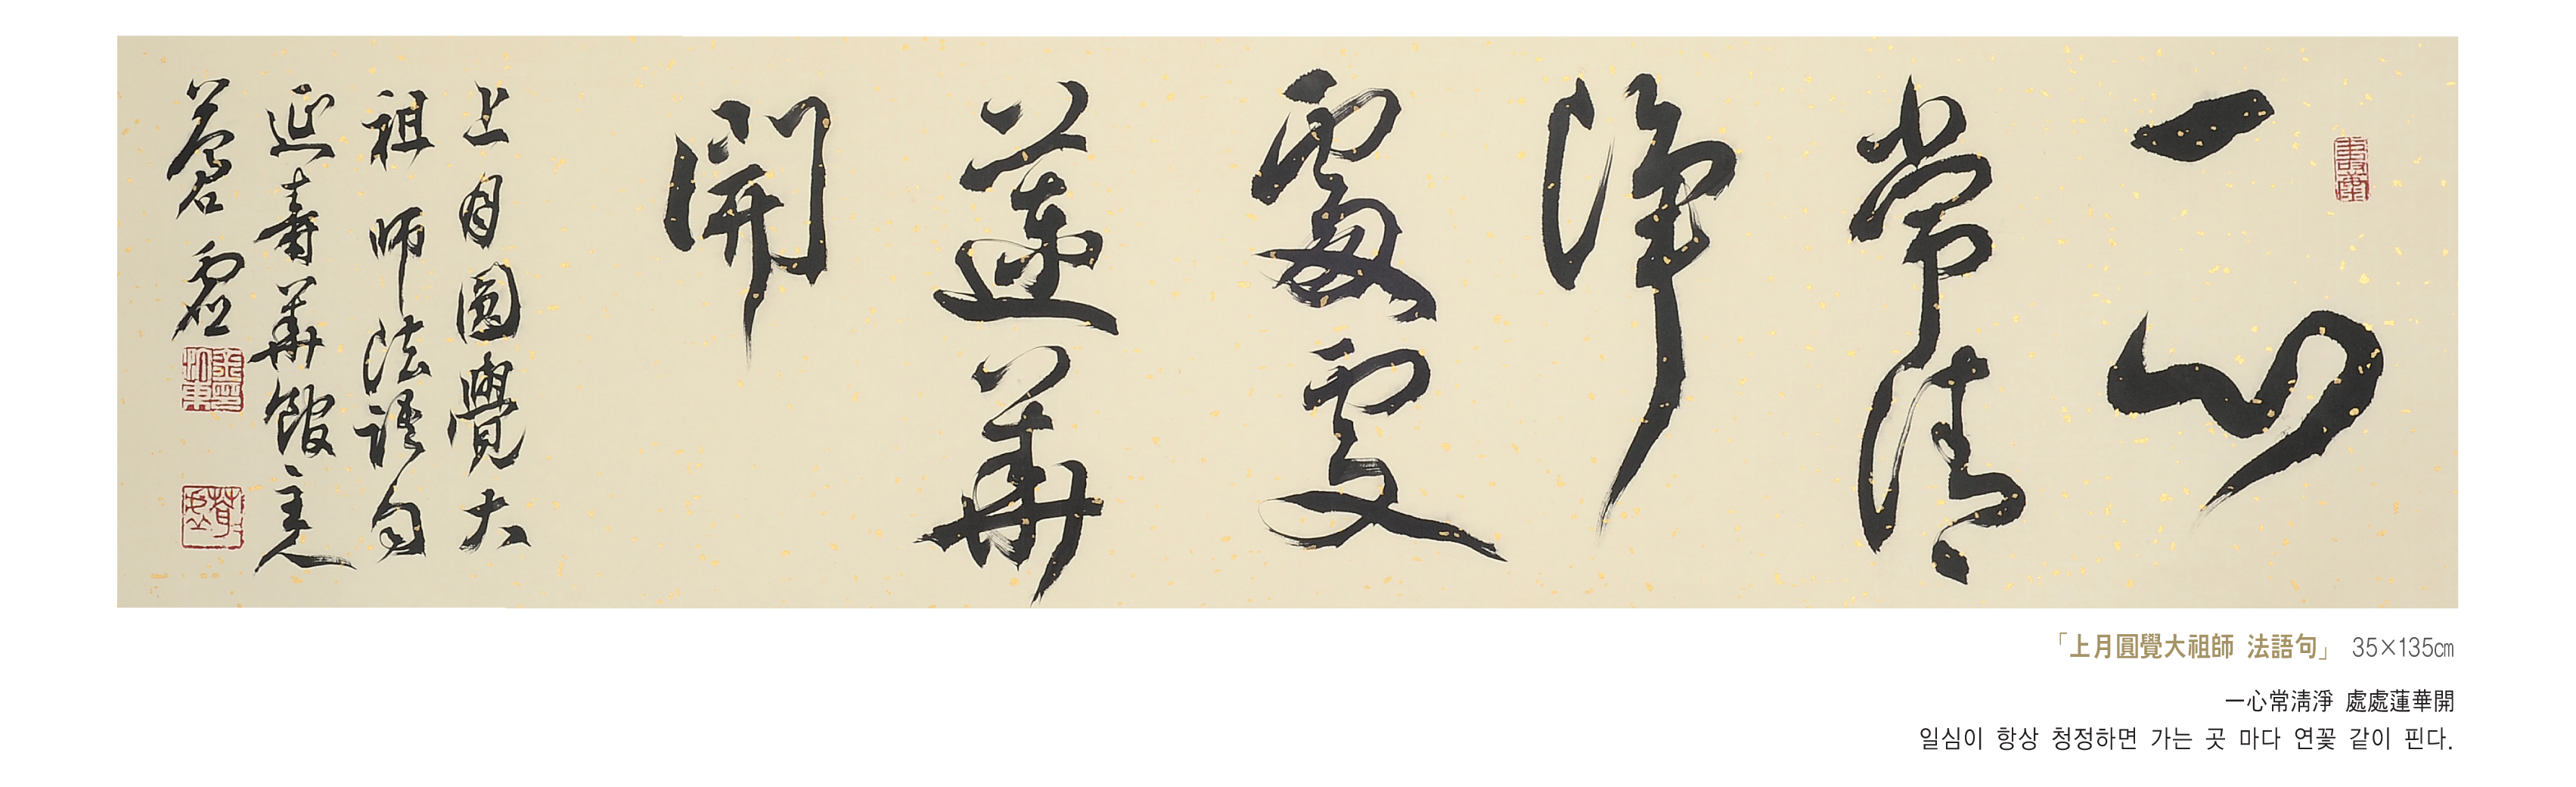 一心
常清
淨
處處
蓮華
開
上月圓覺大
祖師法語句
延壽華館主人
蒼虛
「上月圓覺大祖師 法語句」 35×135㎝
一心常淸淨 處處蓮華開
일심이 항상 청정하면 가는 곳 마다 연꽃 같이 핀다.